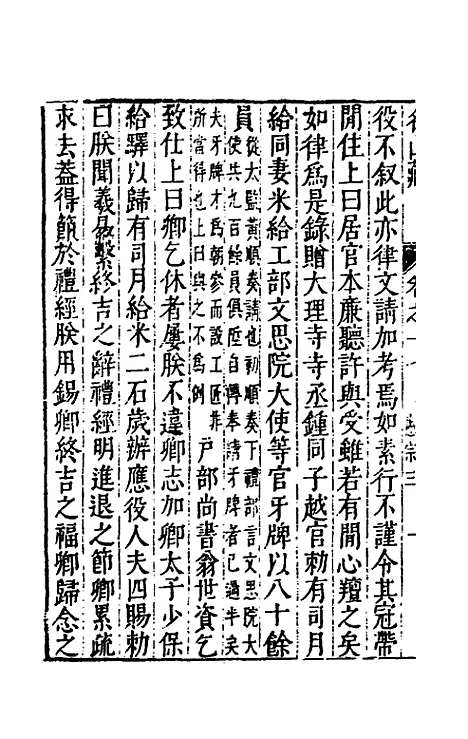 役不叙此亦律文請加考焉如素行不謹令其冠帶
閒住上曰居官本廉聽許與受雖若有閒心羶之矣
如律爲是錄贈大理寺寺丞鍾同子越官勅有司月
給同妻米給工部文思院大使等官牙牌以八十餘
員從太監黃順奏請也初順奏下禮部言文思院大
使共九百餘員俱匠自興奉請牙牌者已過半矣
夫牙牌才爲朝參而設工匠非
所當得也上曰與之不爲例
戶部尚書翁世資乞
致仕上曰卿乞休者屢朕不違卿志加卿太子少保
給驛以歸有司月給米二石歲辦應役人夫四賜勅
曰朕聞羲易繫終吉之辭禮經明進退之節卿累疏
求去葢得節於禮經朕用錫卿終吉之福卿歸念之